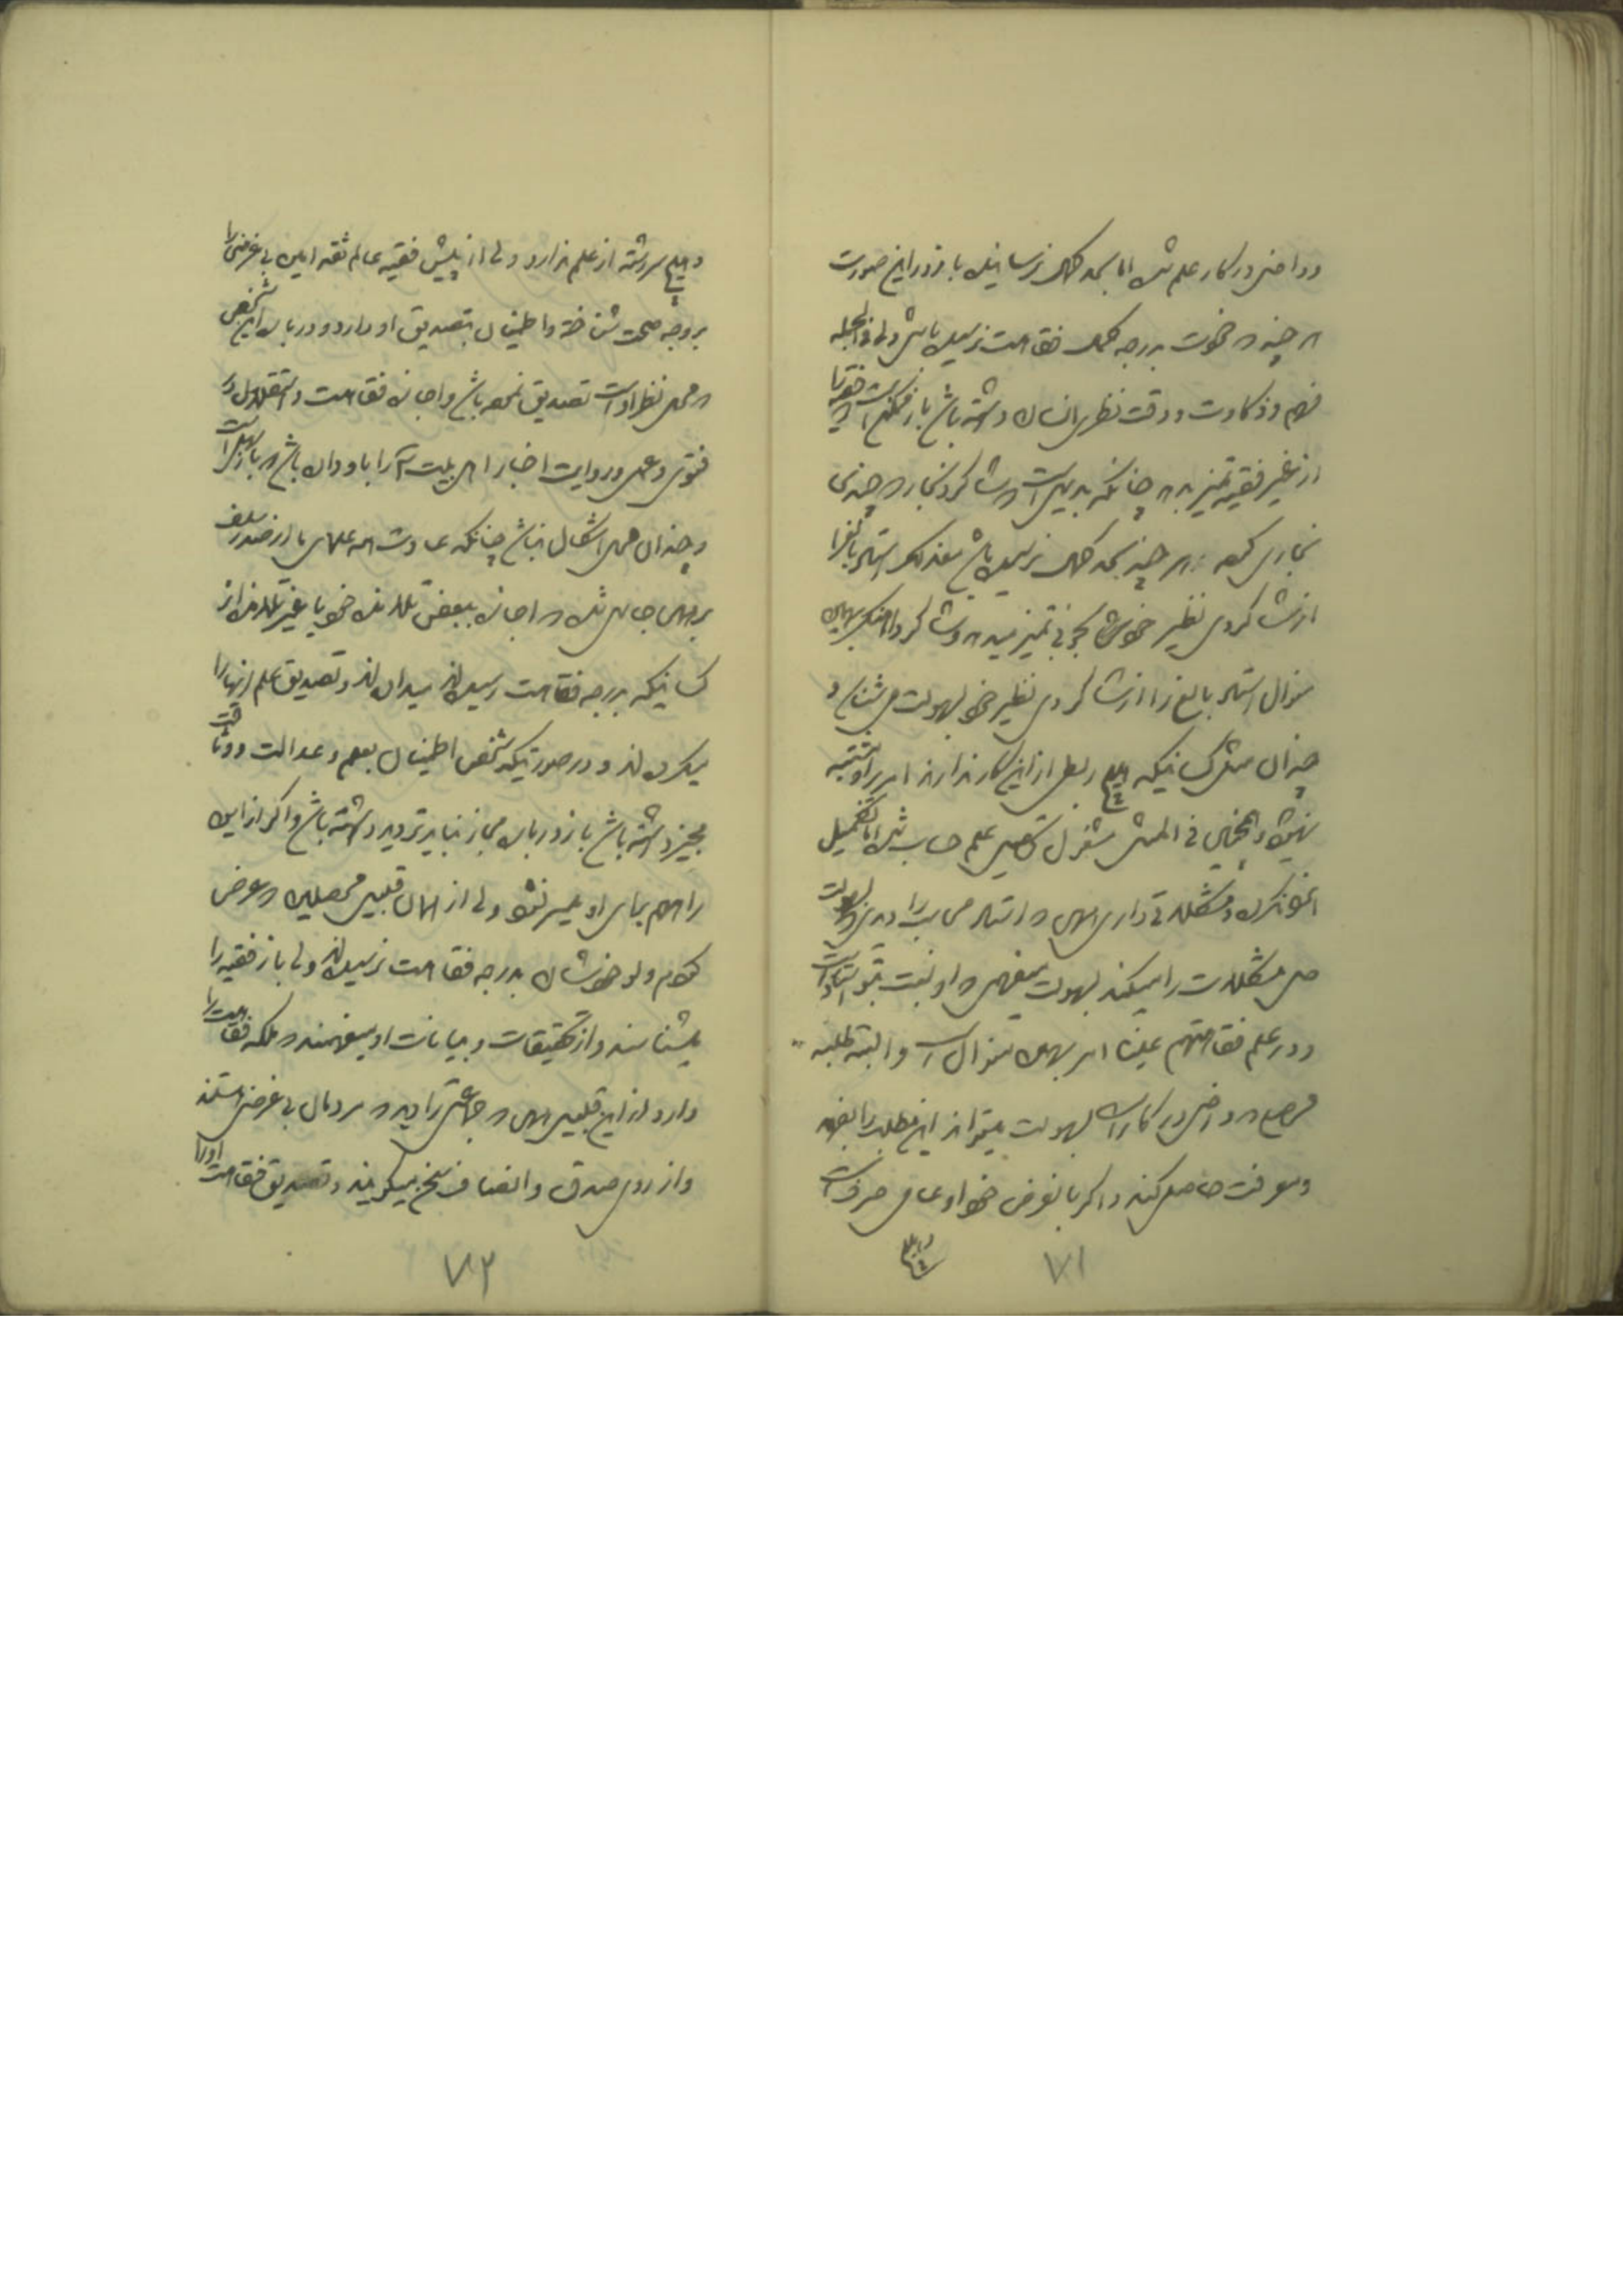 و داخل در کار علم شده اما بحد کمال نرسانیده باز در این صورت
هر چند خودت بدرجه کمال فقاهت نرسیده باشی ولی فی الجمله
فهم و ذکاوت و دقت نظری انسان داشته باشد باز ممکن است فقیه را
از غیر فقیه تمیز بدهد چنانکه بدیهی است شاگرد نجار هر چندی
نجاری کرده هر چند بحد کمال نرسیده باشد معذلک استاد بالغ را
از شاگردی نظیر خودش بخوبی تمیز میدهد و شاگرد
میتوان استاد بالغ را از شاگردی نظیر خود بسهولت می شناسد و
چندان مثل کسانیکه هیچ ربطی از این کار ندارند امر بر او مشتبه
نمیشود و همچنین فی المثل مشغول تحصیل علم حساب شده اما تکمیل
نکرده و مشکلاتی دارد استاد محاسب را بسهولت
حل مشکلات را میکند بسهولت میفهمد او نسبت بتو استاد است
و در علم فقاهت هم عینا امر بهمین منوال است و البته طلبه
و داخل در کار است بسهولت میتواند این مطلب را بفهمد
و معرفت حاصل کند و اگر بالفرض خود او عامی صرف است
و هیچ
۷۱
و هیچ سررشته از علم ندارد ولی از پیش فقیه عالم ثقه امین بی غرضی را
بر وجه صحت شناخته و اطمینان بتصدیق او دارد و درباره این شخص
هم محل نظر اوست تصدیق نموده باشد و اجازه فقاهت و استقلال در
فتوی و عمل و روایت اخبار اهل بیت ع را باو داده باشد باز سهل است
و چندان محل اشکال نباشد چنانکه عادت همه علمای ما از صدر سلف
بر همین جاری شده اجازه ببعض تلامذه خود یا غیر تلامذه از
کسانیکه بدرجه فقاهت رسیده اند میداده اند و تصدیق علم آنها را
میکرده اند و در صورتیکه شخص اطمینان بعلم و عدالت و وثاقت
مجیز داشته باشد باز درباره مجاز نباید تردید داشته باشد و اگر از این
راه هم برای او میسر نشود ولی از همان قبیل محصلین عرض
کردم ولو خودشان بدرجه فقاهت نرسیده اند ولی باز فقیه را
میشناسند و از تحقیقات و بیانات او میفهمند ملکه فقاهت را
دارد از این قبیل جماعتی را دید مردمان بی غرضی هستند
و از روی صدق و انصاف سخن میگویند و تصدیق فقاهت او را
۷۲